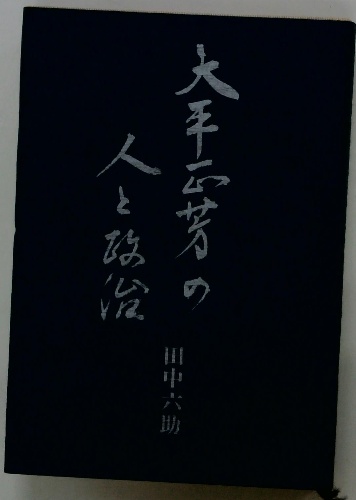 大平正芳の
人と政治
田中六助